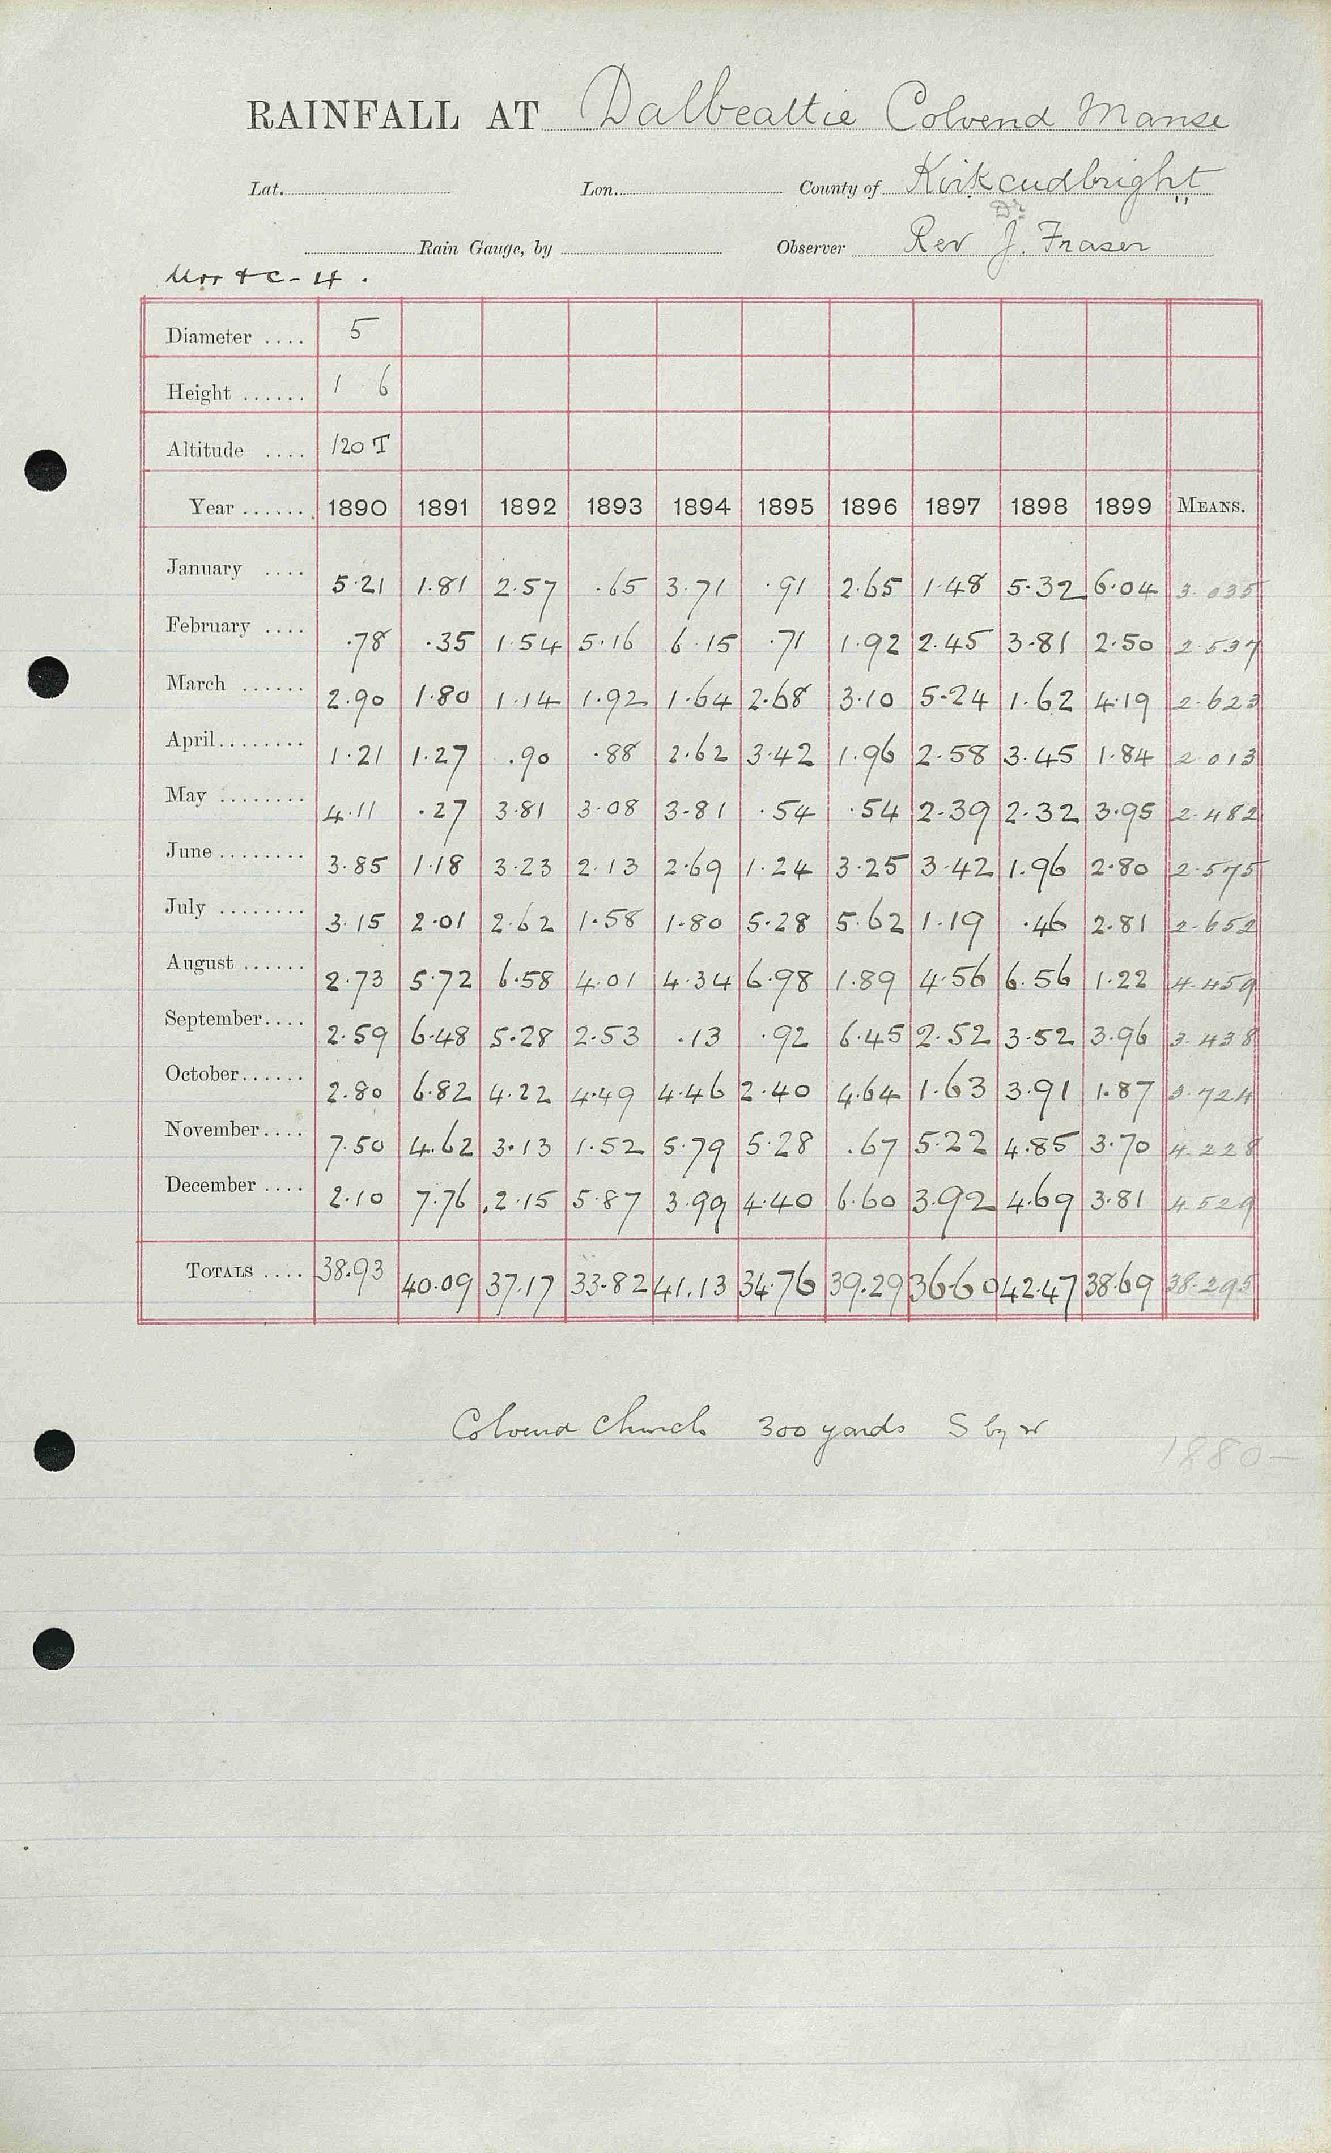 RAINFALL AT Dalbeattie Colvend Manse
Lat. Lon. County of Kirkcudbright
Dr
Rain Gauge, by Observer Rev J. Fraser
Diameter .... 5
Height ...... 1 6
Altitude .... 120 T
Year ...... 1890 1891 1892 1893 1894 1895 1896 1897 1898 1899 MEANS.
January .... 5.21 1.81 2.57 .65 3.71 .91 2.65 1.48 5.32 6.04 3.035
February .... .78 .35 1.54 5.16 6.15 .71 1.92 2.45 3.81 2.50 2.537
March ...... 2.90 1.80 1.14 1.92 1.64 2.68 3.10 5.24 1.62 4.19 2.623
April........ 1.21 1.27 .90 .88 2.62 3.42 1.96 2.58 3.45 1.84 2.013
May ........ 4.11 .27 3.81 3.08 3.81 .54 .54 2.39 2.32 3.95 2.482
June ........ 3.85 1.18 3.23 2.13 2.69 1.24 3.25 3.42 1.96 2.80 2.575
July ........ 3.15 2.01 2.62 1.58 1.80 5.28 5.62 1.19 .46 2.81 2.652
August ...... 2.73 5.72 6.58 4.01 4.34 6.98 1.89 4.56 6.56 1.22 4.459
September.... 2.59 6.48 5.28 2.53 .13 .92 6.45 2.52 3.52 3.96 3.438
October...... 2.80 6.82 4.22 4.49 4.46 2.40 4.64 1.63 3.91 1.87 3.724
November.... 7.50 4.62 3.13 1.52 5.79 5.28 .67 5.22 4.85 3.70 4.228
December .... 2.10 7.76 2.15 5.87 3.99 4.40 6.60 3.92 4.69 3.81 4.529
TOTALS .... 38.93 40.09 37.17 33.82 41.13 34.76 39.29 36.60 42.47 38.69 38.295
Colvend Church 300 yards S by W
1880-